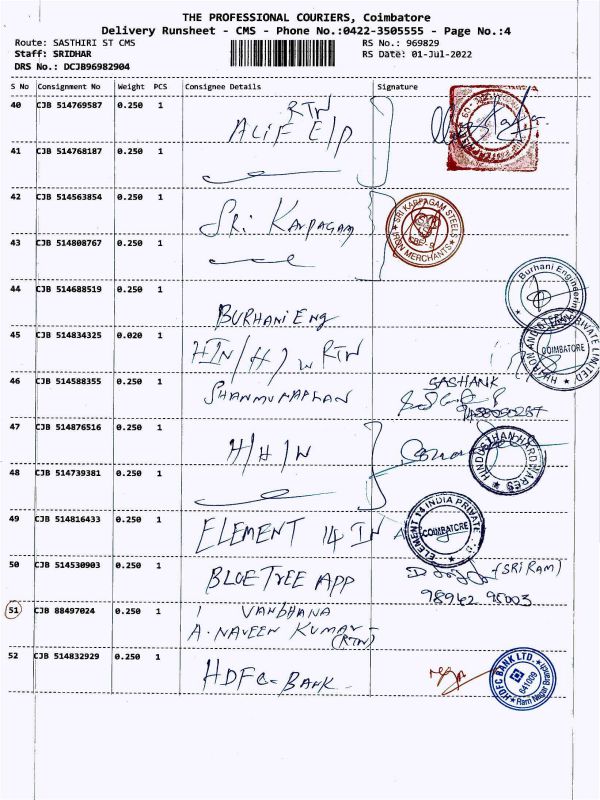 THE PROFESSIONAL COURIERS, Coimbatore
Delivery Runsheet - CMS - Phone No.:0422-3505555 - Page No.:4
Route: SASTHIRI ST CMS RS No.: 969829
Staff: SRIDHAR RS Date: 01-Jul-2022
DRS No.: DCJB96982904
S No Consignment No Weight PCS Consignee Details Signature
40 CJB 514769587 0.250 1 RTN
ALIF E/P
41 CJB 514768187 0.250 1
42 CJB 514563854 0.250 1 SRi KARPAGAM SRI KARPAGAM STEELS IRON MERCHANTS CBE-9
43 CJB 514808767 0.250 1
44 CJB 514688519 0.250 1 BURHANi ENg Burhani Engineering
45 CJB 514834325 0.020 1 HIN/H/W RTN PRIVATE LIMITED COIMBATORE
46 CJB 514588355 0.250 1 SASHANK
47 CJB 514876516 0.250 1 H/H/W HINDUSTHAN HARDWARES
48 CJB 514739381 0.250 1
49 CJB 514816433 0.250 1 ELEMENT 14 IN ELEMENT 14 INDIA PRIVATE COIMBATORE
50 CJB 514530903 0.250 1 BLOETREE APP (SRIRAM)
98942 95003
51 CJB 88497024 0.250 1 VANDHANA
A. NAVEEN KUMAR
(RTN)
52 CJB 514832929 0.250 1 HDFC - BANK HDFC BANK LTD. 641009 Ram Nagar Branch